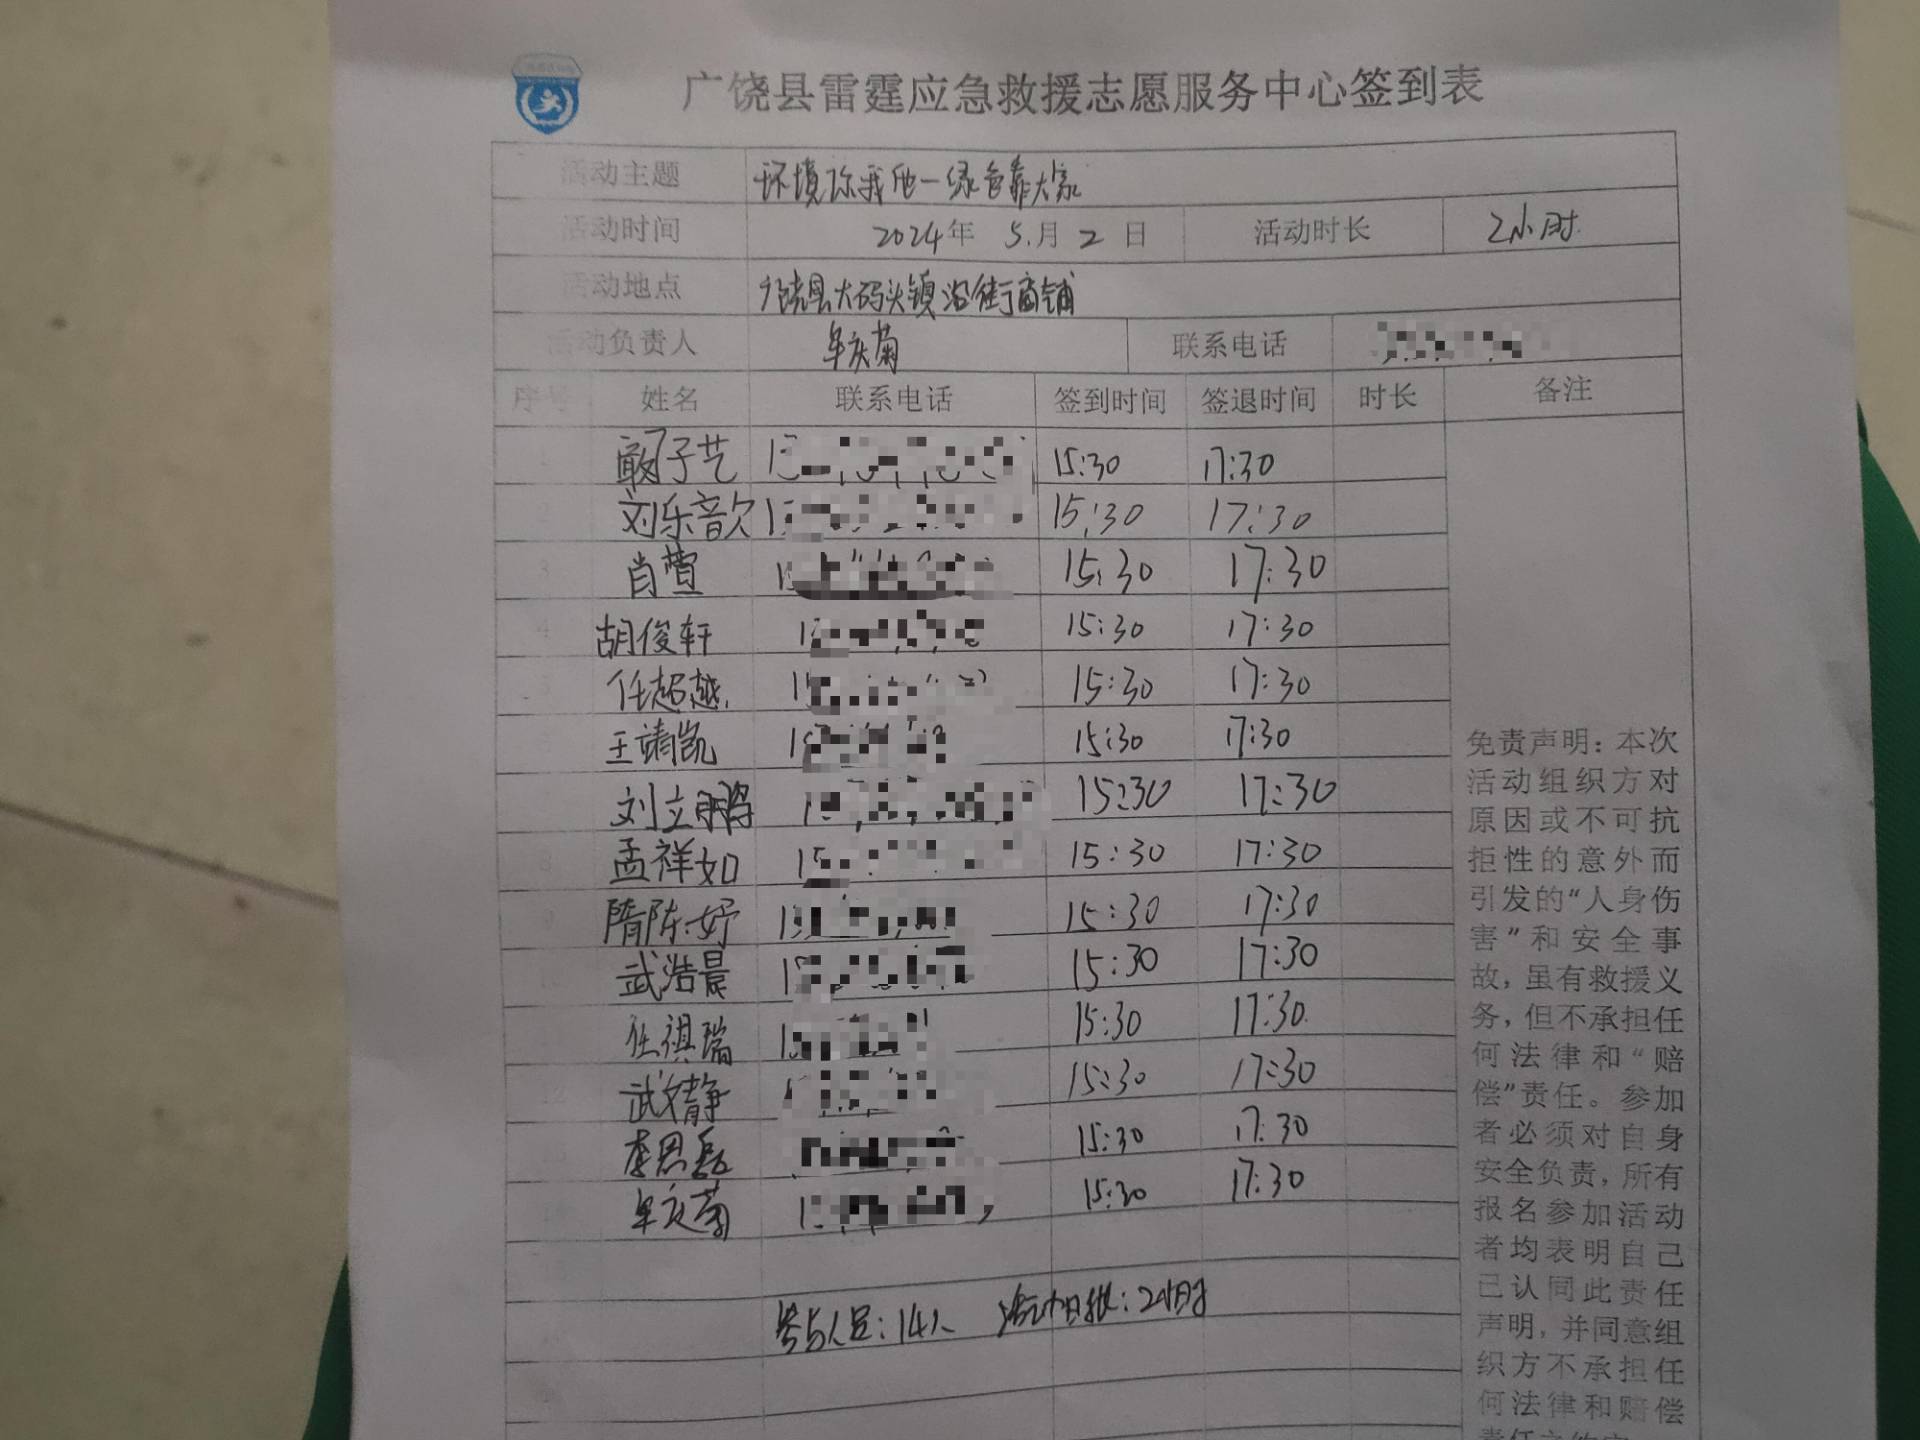 广饶县雷霆应急救援志愿服务中心签到表
活动主题 环境你我他一绿色靠大家
活动时间 2024年 5月 2 日 活动时长 2小时
活动地点 广饶县大码头镇沿街商铺
活动负责人 牟庆菊 联系电话
序号 姓名 联系电话 签到时间 签退时间 时长 备注
子艺 15:30 17:30
2 刘乐音欠 15:30 17:30
3 肖萱 15:30 17:30
4 胡俊轩 15:30 17:30
任超越 15:30 17:30
王靖凯 15:30 17:30
刘立鹏 15:30 17:30
8 孟祥如 15:30 17:30
9 隋陈妤 15:30 17:30
武浩晨 15:30 17:30
任祺瑞 15:30 17:30
12 武文静 15:30 17:30
李恩磊 15:30 17:30
牟庆菊 15:30 17:30
参与人员：14人 活动时长：2小时
免责声明：本次
活动组织方对
原因或不可抗
拒性的意外而
引发的“人身伤
害”和安全事
故，虽有救援义
务，但不承担任
何法律和“赔
偿”责任。参加
者必须对自身
安全负责，所有
报名参加活动
者均表明自己
已认同此责任
声明，并同意组
织方不承担任
何法律和赔偿